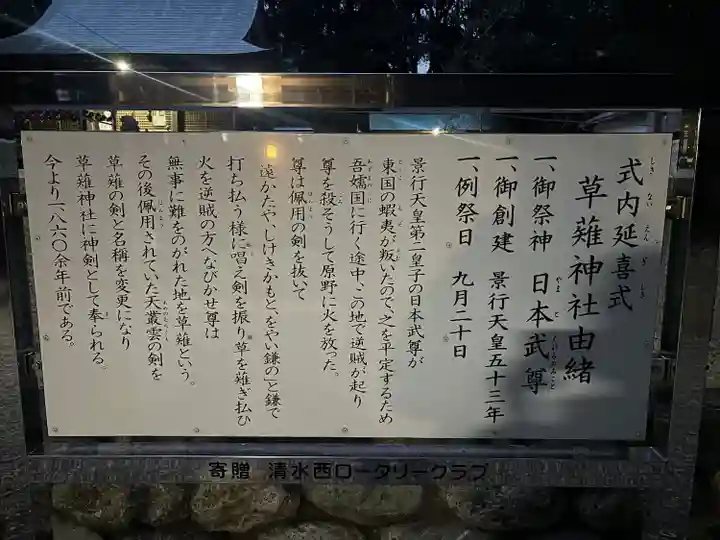 式内延喜式
草薙神社由緒
一、御祭神 日本武尊
一、御創建 景行天皇五十三年
一、例祭日 九月二十日
景行天皇第二皇子の日本武尊が
東国の蝦夷が叛いたので、之を平定するため
吾嬬国に行く途中、この地で逆賊が起り
尊を殺そうして原野に火を放った。
尊は佩用の剣を抜いて
「遠かたや、しげきかもと、をやい鎌の」と鎌で
打ち払う様に唱え剣を振り草を薙ぎ払ひ
火を逆賊の方へなびかせ尊は
無事に難をのがれた地を草薙という。
その後佩用されていた天叢雲の剣を
草薙の剣と名称を変更になり
草薙神社に神剣として奉られる。
今より一八六〇余年前である。
寄贈 清水西ロータリークラブ